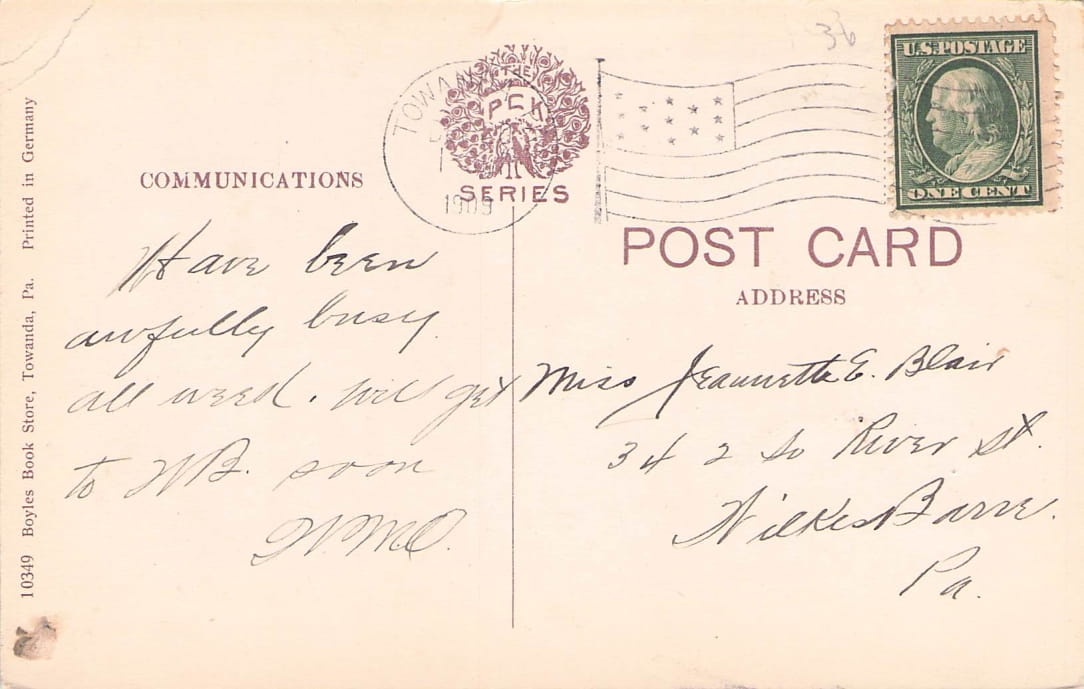 36
U.S. POSTAGE
ONE CENT
TOWANDA
1909
THE
PCK
SERIES
COMMUNICATIONS
POST CARD
ADDRESS
10349 Boyles Book Store, Towanda, Pa. Printed in Germany
Have been
awfully busy
all week. Will get
to WB. soon
Miss Jeannette E. Blair
342 So River St.
Wilkes Barre.
Pa.